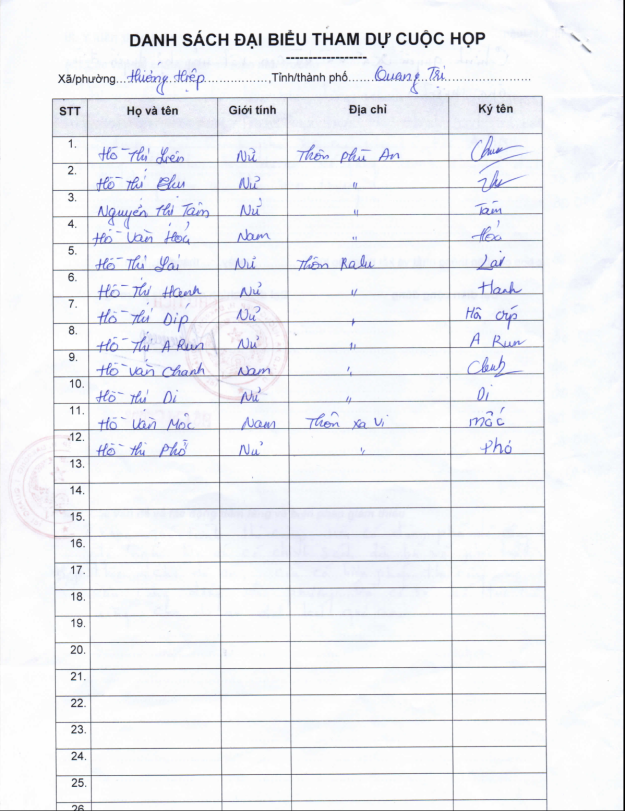 DANH SÁCH ĐẠI BIỂU THAM DỰ CUỘC HỌP
Xã/phường...Hướng Hiệp...,Tỉnh/thành phố...Quảng Trị...
STT Họ và tên Giới tính Địa chỉ Ký tên
1. Hồ Thị Liên Nữ Thôn Phú An
2. Hồ Thị Nữ "
3. Nguyễn Thị Tâm Nữ " Tâm
4. Hồ Văn Hoá Nam " Hoá
5. Hồ Thị Lai Nữ Thôn Ralu Lai
6. Hồ Thị Hanh Nữ " Hanh
7. Hồ Thị Dip Nữ " Hồ
8. Hồ Thị A Run Nữ " A Run
9. Hồ Văn Chanh Nam "
10. Hồ Thị Di Nữ " Di
11. Hồ Văn Mốc Nam Thôn Xa Vi mốc
12. Hồ Thị Phò Nữ " Phò
13.
14.
15.
16.
17.
18.
19.
20.
21.
22.
23.
24.
25.
26